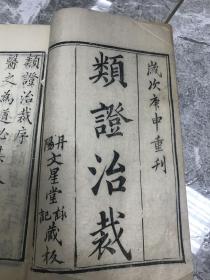 歲次庚申重刊
類證治裁
丹陽文星堂詠記藏板
類證治裁序
醫之為道必其人